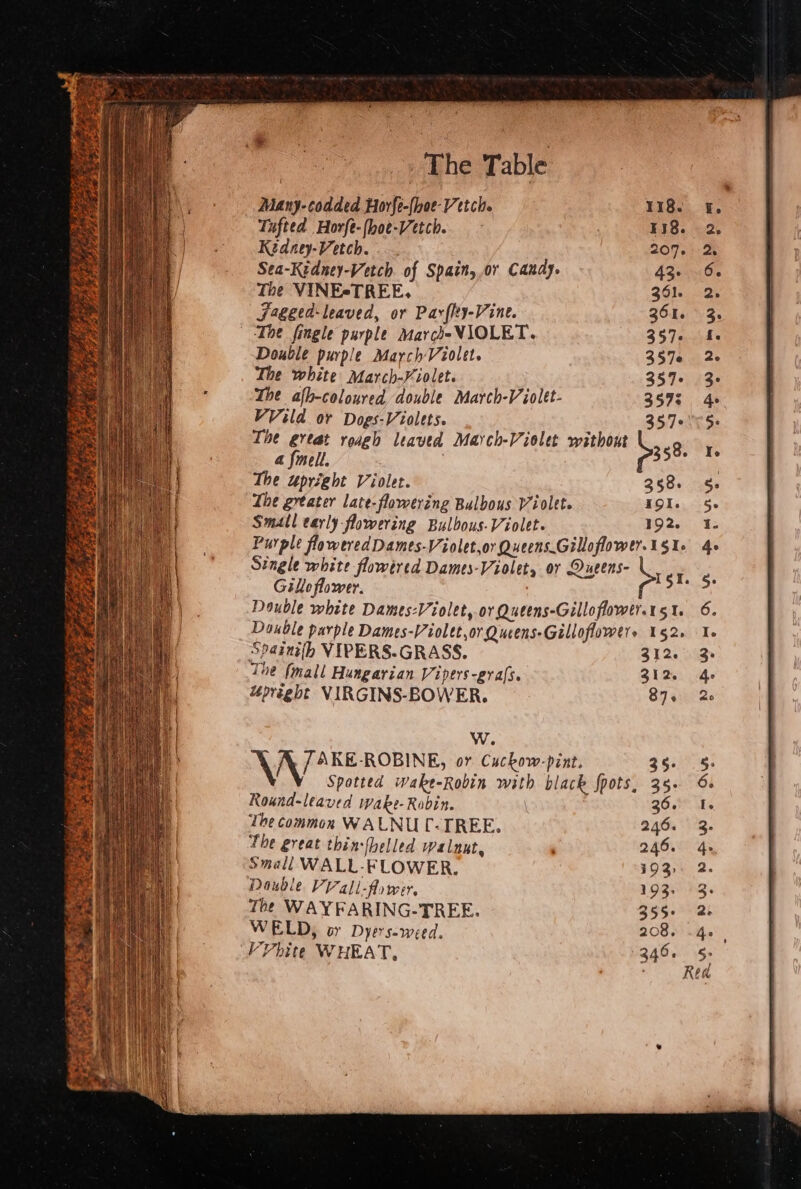 The Table
Many-codded Horſe-ſhoe-Vetch. 118. 1.
Tufted Horſe-ſhoe-Vetch. 118. 2.
Kidney-Vetch. 207. 2.
Sea-Kidney-Vetch of Spain, or Candy. 43. 6.
The VINE-TREE. 361. 2.
Jagged-leaved, or Parſley-Vine. 361. 3.
The ſingle purple March-VIOLET. 357. 1.
Double purple March Violet. 357. 2.
The white March-Violet. 357. 3.
The aſh-coloured double March-Violet. 357. 4.
VVild or Dogs-Violets. 357. 5.
The great rough leaved March-Violet without
a ſmell. } 358. 1.
The upright Violet. 358. 5.
The greater late-flowering Bulbous Violet. 191. 5.
Small early flowering Bulbous-Violet. 192. 1.
Purple flowered Dames-Violet, or Queens-Gilloflower. 151. 4.
Single white flowered Dames-Violet, or Queens-
Gilloflower. } 151. 5.
Double white Dames-Violet, or Queens-Gilloflower. 151. 6.
Double purple Dames-Violet, or Queens-Gilloflower. 152. 1.
Spaniſh VIPERS-GRASS. 312. 3.
The ſmall Hungarian Vipers-graſs. 312. 4.
Upright VIRGINS-BOWER. 87. 2.
W.
WAKE-ROBINE, or Cuckow-pint. 35. 5.
Spotted Wake-Robin with black ſpots, 35. 6.
Round-leaved Wake-Robin. 36. 1.
The common WALNUT-TREE. 246. 3.
The great thin-ſhelled Walnut, 246. 4.
Small WALL-FLOWER. 193. 2.
Double VVall-flower. 193. 3.
The WAYFARING-TREE. 355. 2.
WELD, or Dyers-weed. 208. 4.
VVhite WHEAT, 346. 5.
Red